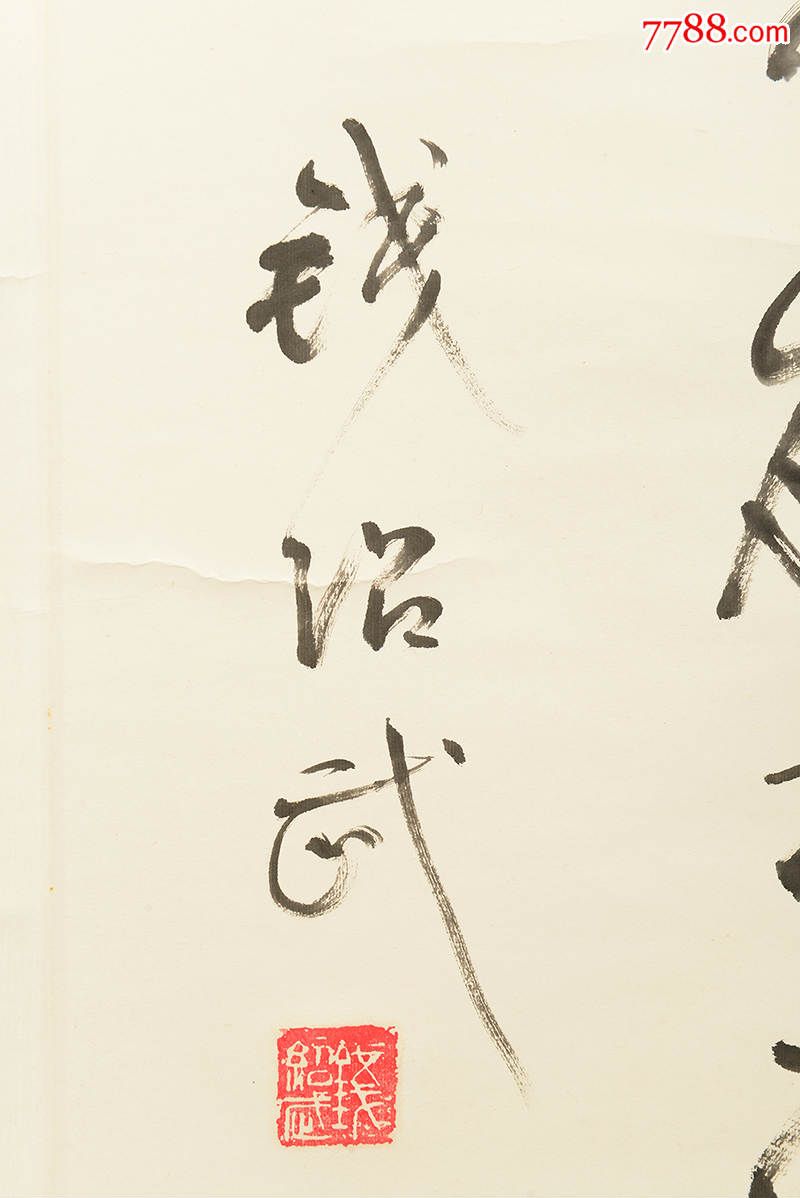 7788.com
钱绍武
錢紹武